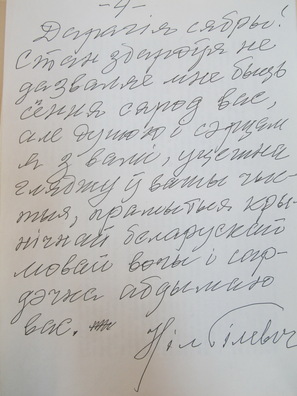 - 4 -
Дарагія сябры!
Стан здароўя не
дазваляе мне быць
сёння сярод вас,
але душою і сэрцам
я з вамі, уцешна
гляджу ў вашы чыс-
тыя, прамытыя кры-
нічнай беларускай
мовай вочы і сар-
дэчна абдымаю
вас.
Ніл Гілевіч